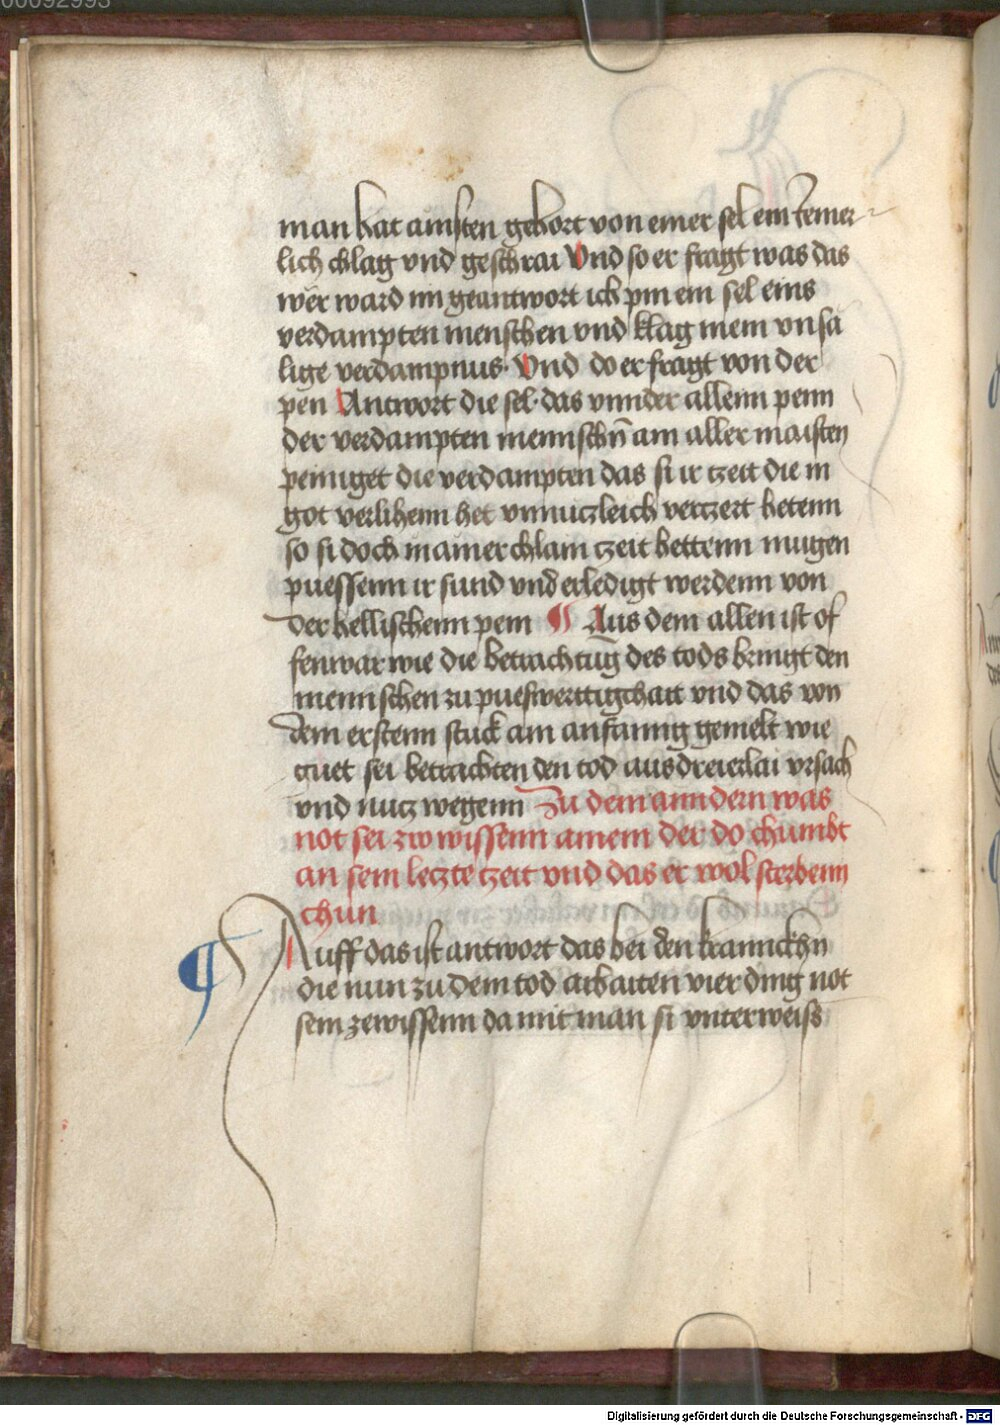 00092993
man hat ainsten gehort von einer sel ein iemer-
lich chlag vnd geschrai Vnd so er fragt was das
wer ward im geantwort ich pin ein sel eins
verdampten menschen vnd klag mein vnsa
lige verdampnus. Vnd do er fragt von der
pen Antwort die sel. das vnnder allenn penn
der verdampten mennschn̄ am aller maisten
peiniget die verdampten das si ir tzeit die in
got verlihenn het vnnutzleich vertzert hetenn
so si doch in ainer chlain tzeit hettenn mugen
puessenn ir sund vnd erledigt werdenn von
der hellischenn pein ¶ Aus dem allen ist of
fenwar wie die betrachtūg des tods bringt den
mennschen zu pueswerttigchait vnd das von
dem erstenn stuck am anfanng gemelt wie
guet sei betrachten den tod aus dreierlai vrsach
vnd nutz wegenn Zu dem anndern was
not sei zw wissenn ainem der do chumbt
an sein letzte tzeit vnd das er wol sterbenn
chun
¶ Auff das ist antwort das bei den krannckhn
die nun zu dem tod arbaiten vier ding not
sein zewissenn da mit man si vnterweiss
Digitalisierung gefördert durch die Deutsche Forschungsgemeinschaft - DFG